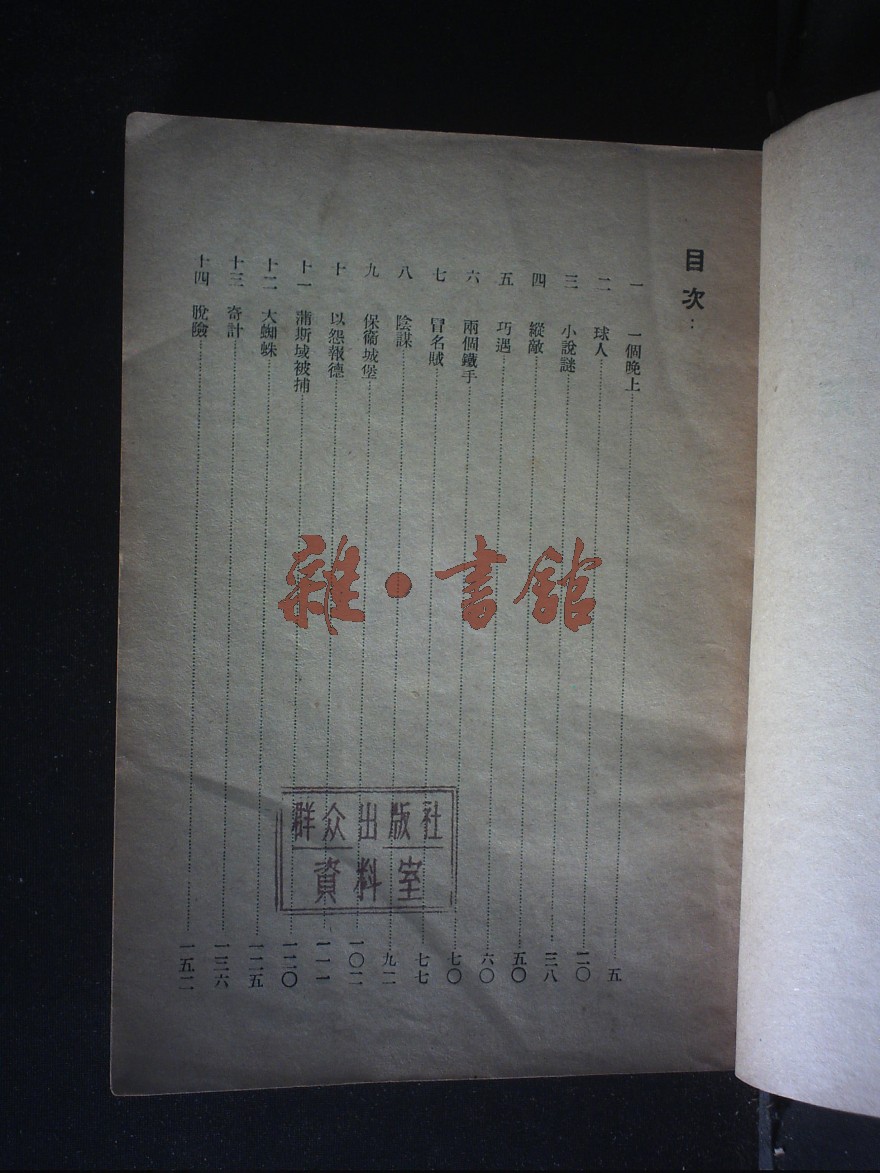 目次：
一 一個晚上 五
二 球人 二〇
三 小說謎 三八
四 縱敵 五〇
五 巧遇 六〇
六 兩個鐵手 七〇
七 冒名賊 七七
八 陰謀 九二
九 保衞城堡 一〇二
十 以怨報德 一一一
十一 蒲斯域被捕 一二〇
十二 大蜘蛛 一二五
十三 奇計 一三六
十四 脫險 一五二
雜·書館
群众出版社
資料室